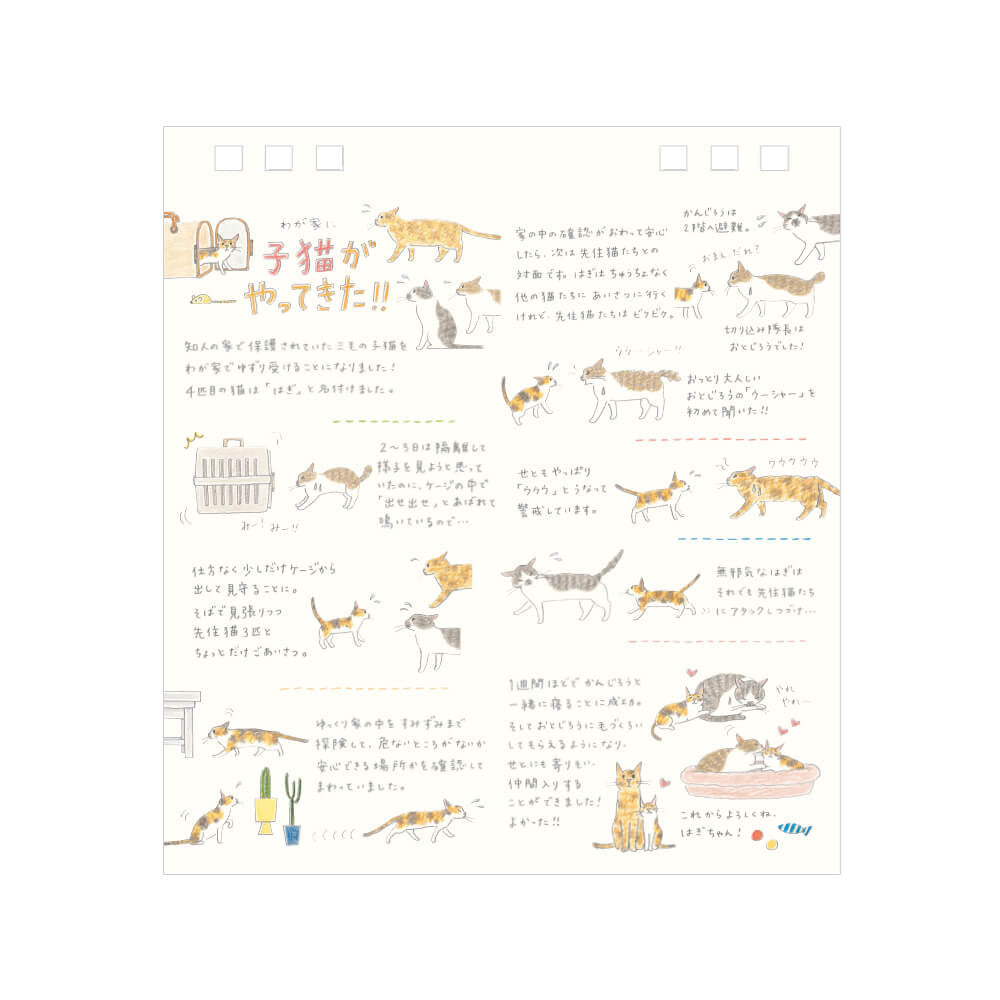 わが家に
子猫が
やってきた!!
知人の家で保護されていた三毛の子猫を
わが家でゆずり受けることになりました!
4匹目の猫は「はぎ」と名付けました。
2〜3日は隔離して
様子を見ようと思って
いたのに、ケージの中で
「出せ出せ」とあばれて
鳴いているので…
みー! みー!!
仕方なく少しだけケージから
出して見守ることに。
そばで見張りつつ
先住猫3匹と
ちょっとだけごあいさつ。
ゆっくり家の中をすみずみまで
探険して、危ないところがないか
安心できる場所かを確認して
まわっていました。
家の中の確認がおわって安心
したら、次は先住猫たちとの
対面です。はぎはちゅうちょなく
他の猫たちにあいさつに行く
けれど、先住猫たちはビクビク。
かんじろうは
2階へ避難。
おまえ、だれ?
切り込み隊長は
おとじろうでした!
ウウーシャー!!
おっとり大人しい
おとじろうの「ウーシャー」を
初めて聞いた!!
せともやっぱり
「ウウウ」とうなって
警戒しています。
ウウウウウ
無邪気なはぎは
それでも先住猫たち
にアタックしつづけ…
1週間ほどでかんじろうと
一緒に寝ることに成功。
そしておとじろうに毛づくろい
してもらえるようになり、
せとにも寄りそい、
仲間入りする
ことができました!
よかった!!
やれ
やれ…
これからよろしくね、
はぎちゃん!